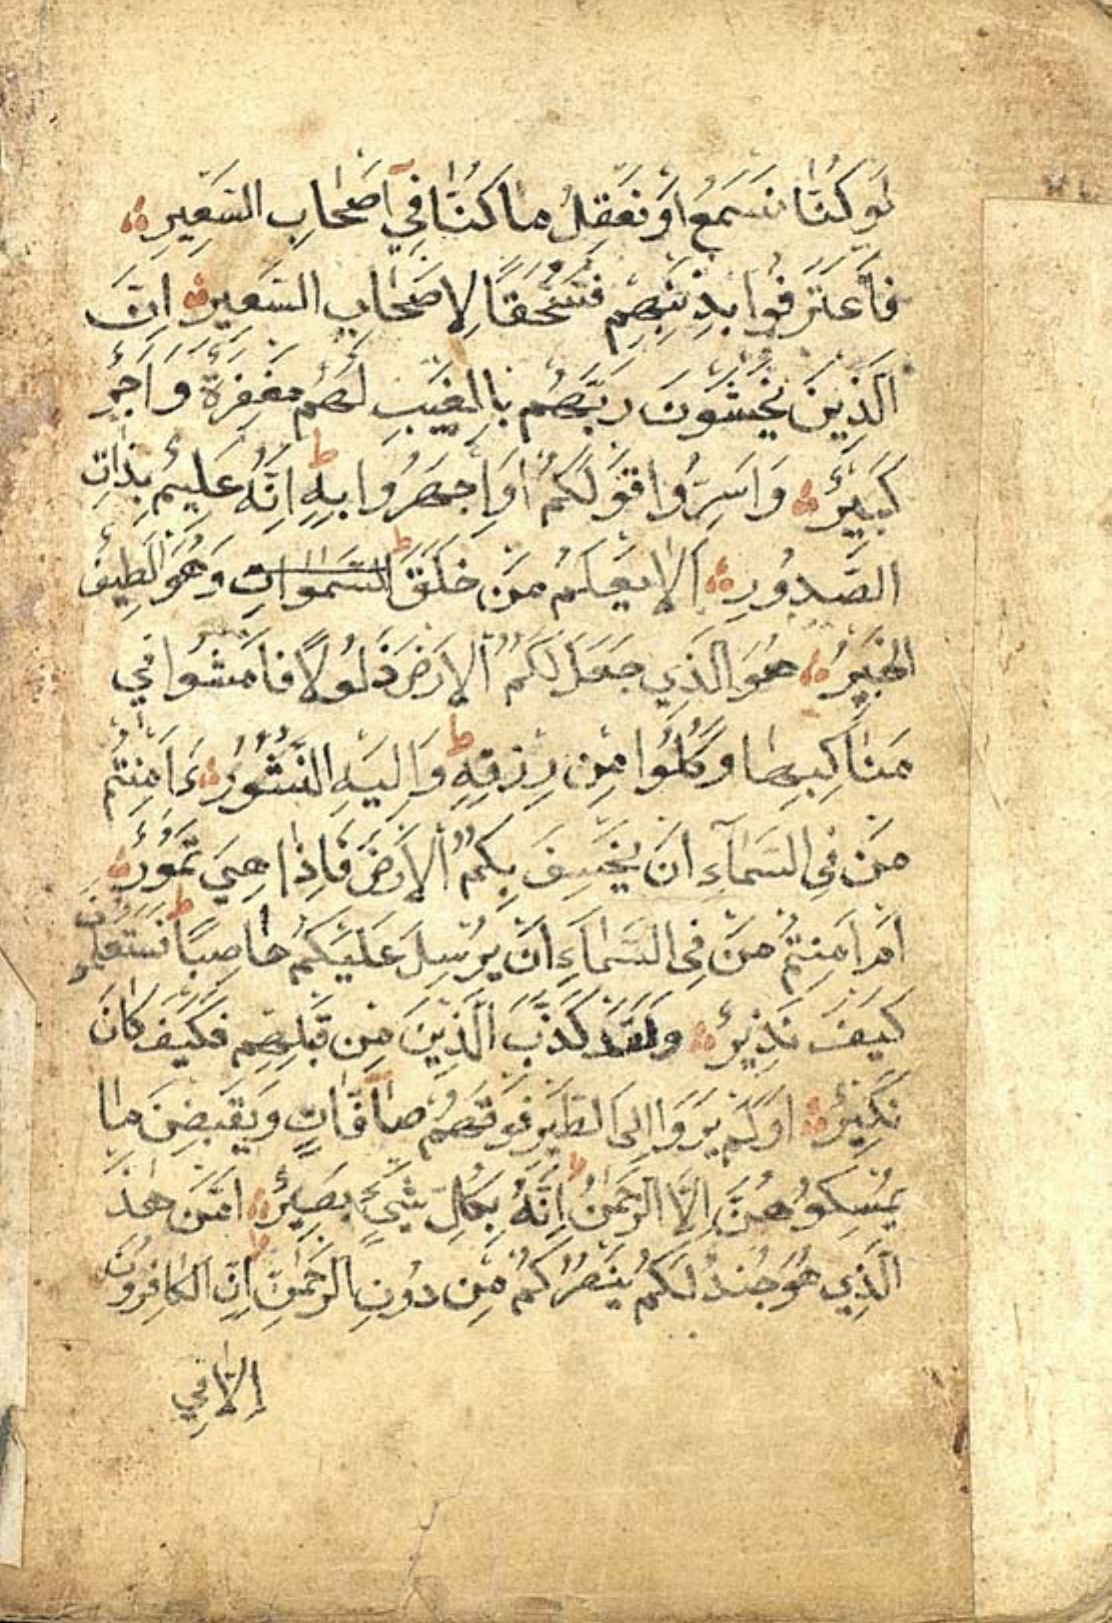 لَوْ كُنَّا نَسْمَعُ اَوْ نَعْقِلُ مَا كُنَّا فِي اَصْحَابِ السَّعِيرِ ۝
فَاعْتَرَفُوا بِذَنْبِهِمْ فَسُحْقًا لِاَصْحَابِ السَّعِيرِ ۝ اِنَّ
الَّذِينَ يَخْشَوْنَ رَبَّهُمْ بِالْغَيْبِ لَهُمْ مَغْفِرَةٌ وَاَجْرٌ
كَبِيرٌ ۝ وَاَسِرُّوا قَوْلَكُمْ اَوِ اجْهَرُوا بِهِ ط اِنَّهُ عَلِيمٌ بِذَاتِ
الصُّدُورِ ۝ اَلَا يَعْلَمُ مَنْ خَلَقَ ط السَّمٰوَاتِ وَهُوَ اللَّطِيفُ
الْخَبِيرُ ۝ هُوَ الَّذِي جَعَلَ لَكُمُ الْاَرْضَ ذَلُولًا فَامْشُوا فِي
مَنَاكِبِهَا وَكُلُوا مِنْ رِزْقِهِ ط وَاِلَيْهِ النُّشُورُ ۝ ءَاَمِنْتُمْ
مَنْ فِي السَّمَآءِ اَنْ يَخْسِفَ بِكُمُ الْاَرْضَ فَاِذَا هِيَ تَمُورُ ۝
اَمْ اَمِنْتُمْ مَنْ فِي السَّمَآءِ اَنْ يُرْسِلَ عَلَيْكُمْ حَاصِبًا ط فَسَتَعْلَمُونَ
كَيْفَ نَذِيرِ ۝ وَلَقَدْ كَذَّبَ الَّذِينَ مِنْ قَبْلِهِمْ فَكَيْفَ كَانَ
نَكِيرِ ۝ اَوَلَمْ يَرَوْا اِلَى الطَّيْرِ فَوْقَهُمْ صَآفَّاتٍ وَيَقْبِضْنَ مَا
يُمْسِكُهُنَّ اِلَّا الرَّحْمٰنُ ط اِنَّهُ بِكُلِّ شَيْءٍ بَصِيرٌ ۝ اَمَّنْ هٰذَا
الَّذِي هُوَ جُنْدٌ لَكُمْ يَنْصُرُكُمْ مِنْ دُونِ الرَّحْمٰنِ ط اِنِ الْكَافِرُونَ
اِلَّا فِي